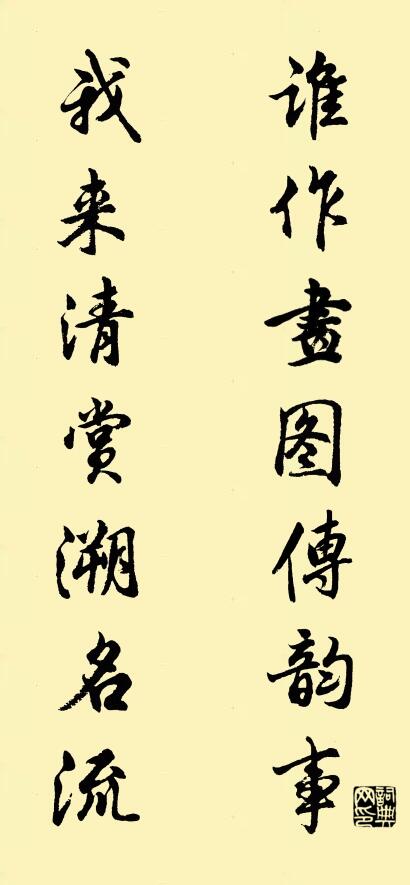 谁作畫图傳韵事
我来清赏溯名流
詞典网印